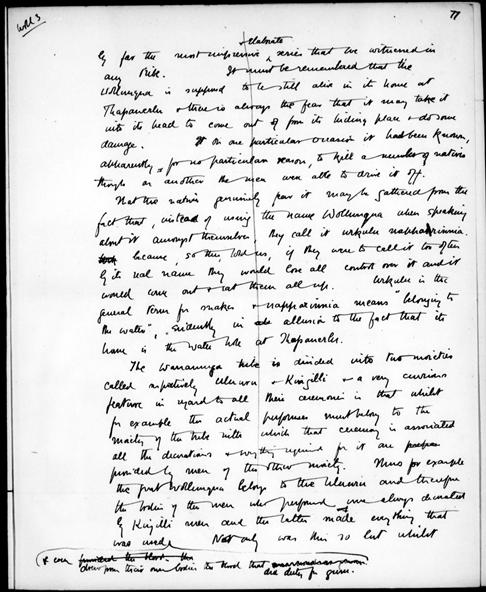 77
& elaborate
by far the most impressive series that we witnessed in
any tribe. It must be remembered that the
Wollunqua is supposed to be still alive in its home at
Thapauerlu & there is always the fear that it may take it
into its head to come out of from its hiding place & do some
damage. It on one particular occasion it had been known,
apparently for no particular reason, to kill a number of natives
though on another the men were able to drive it off.
That the natives genuinely fear it may be gathered from the
fact that, instead of using the name Wollunqua when speaking
about it amongst themselves, they call it urkulu nappaurinnia
because, so they told us, if they were to call it too often
by its real name they would lose all control over it and it
would come out & eat them all up. Urkulu is the
general term for snakes & nappaurinnia means "belonging to
the water", evidently in allusion to the fact that its
home is the water hole at Thapauerlu.
The Warramunga tribe is divided into two moieties
called respectively Uluuru & Kingilli & a very curious
feature in regard to all their ceremonies is that whilst
for example the actual performers must belong to the
moiety of the tribe with which that ceremony is associated
all the decorations & everything required for it are
provided by men of the other moiety. Thus for example
the great Wollunqua belongs to the Uluuru and therefore
the bodies of the men who performed were always decorated
by Kingilli men and the latter made everything that
was used. Not only was this so but whilst
& even provided the blood
drew from their own bodies the blood that did duty for gum.